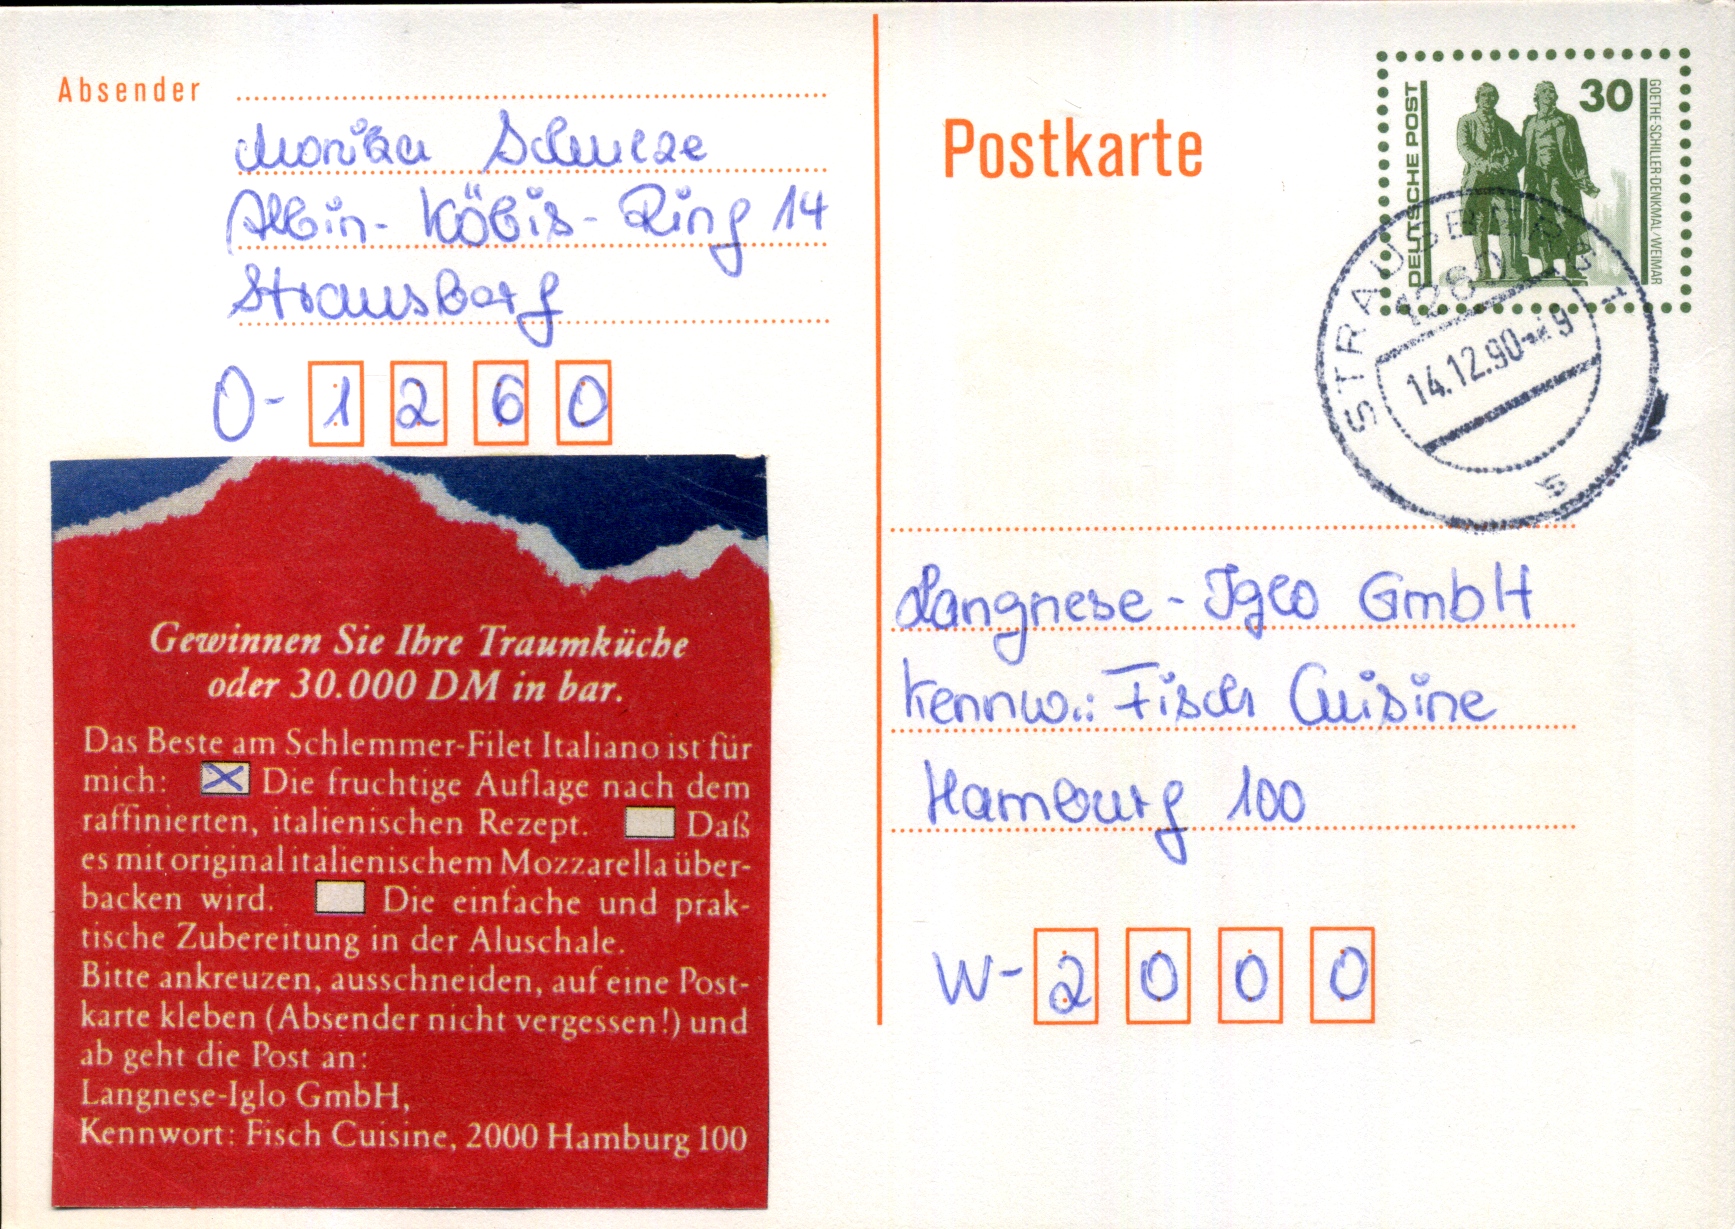 Absender
Monika Schulze
Albin-Köbis-Ring 14
Strausberg
O-1260
Gewinnen Sie Ihre Traumküche
oder 30.000 DM in bar.
Das Beste am Schlemmer-Filet Italiano ist für
mich: Die fruchtige Auflage nach dem
raffinierten, italienischen Rezept. Daß
es mit original italienischem Mozzarella über-
backen wird. Die einfache und prak-
tische Zubereitung in der Aluschale.
Bitte ankreuzen, ausschneiden, auf eine Post-
karte kleben (Absender nicht vergessen!) und
ab geht die Post an:
Langnese-Iglo GmbH,
Kennwort: Fisch Cuisine, 2000 Hamburg 100
Postkarte
DEUTSCHE POST
30
GOETHE-SCHILLER-DENKMAL/WEIMAR
STRAUSBERG 1
1260
14.12.90
s
Langnese-Iglo GmbH
Kennw.: Fisch Cuisine
Hamburg 100
W-2000